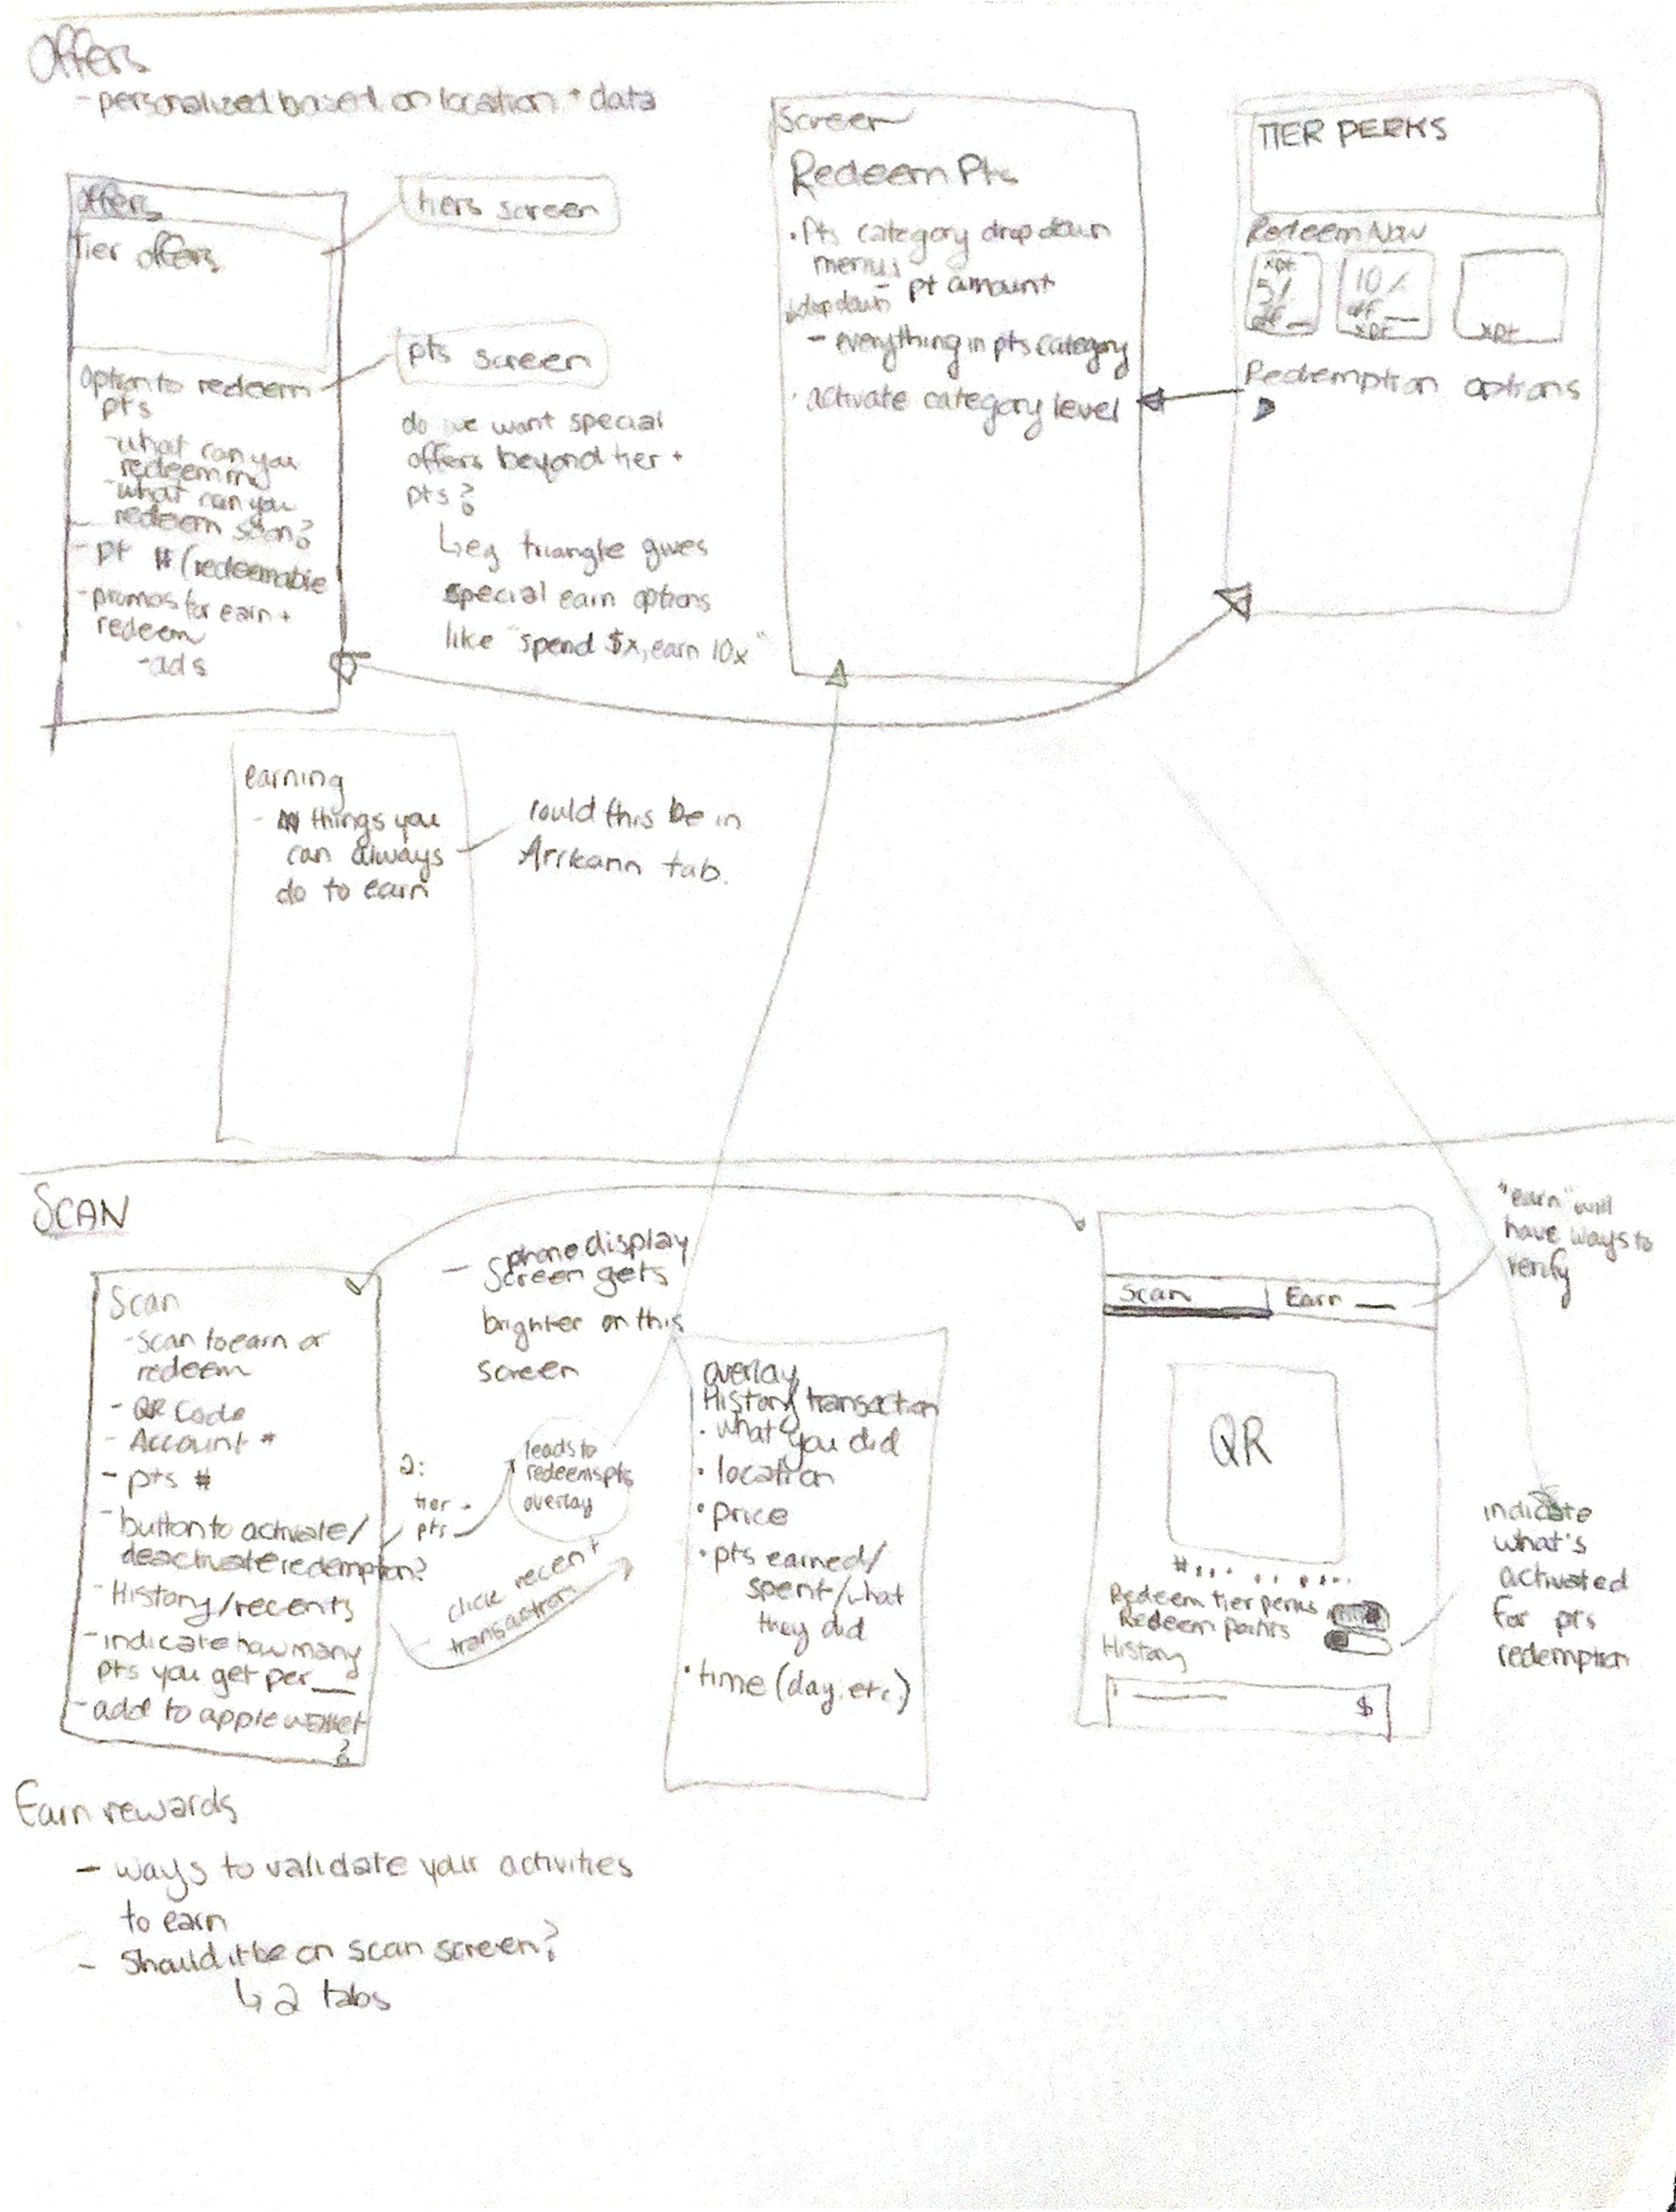 Offers
- personalized based on location + data
offers
Tier offers
tiers screen
option to redeem
pts
- what can you
redeem
- what can you
redeem soon?
- pt # (redeemable
- promos for earn +
redeem
- ads
pts screen
do we want special
offers beyond tier +
pts?
↳ eg triangle gives
special earn options
like "spend $x, earn 10x"
Screen
Redeem Pts
• Pts category drop down
menu
- pt amount
dropdown
- everything in pts category
• activate category level
TIER PERKS
Redeem Now
xpt
5%
off _
10%
off _
xpt
xpt
Redemption options
earning
- things you
can always
do to earn
could this be in
tab.
SCAN
Scan
- Scan to earn or
redeem
- QR Code
- Account #
- pts #
- button to activate/
deactivate redemption?
- History/recents
- indicate how many
pts you get per __
- add to apple wallet
?
- phone display
Screen gets
brighter on this
screen
2:
tier -
pts
leads to
redeems pts
overlay
click recent
transaction
overlay
History transaction
• what you did
• location
• price
• pts earned/
spent/what
they did
• time (day, etc.)
Scan
Earn __
QR
#
Redeem tier perks
Redeem points
History
$
"earn" will
have ways to
verify
indicate
what's
activated
for pts
redemption
Earn rewards
- ways to validate your activities
to earn
- Should it be on scan screen?
↳ 2 tabs